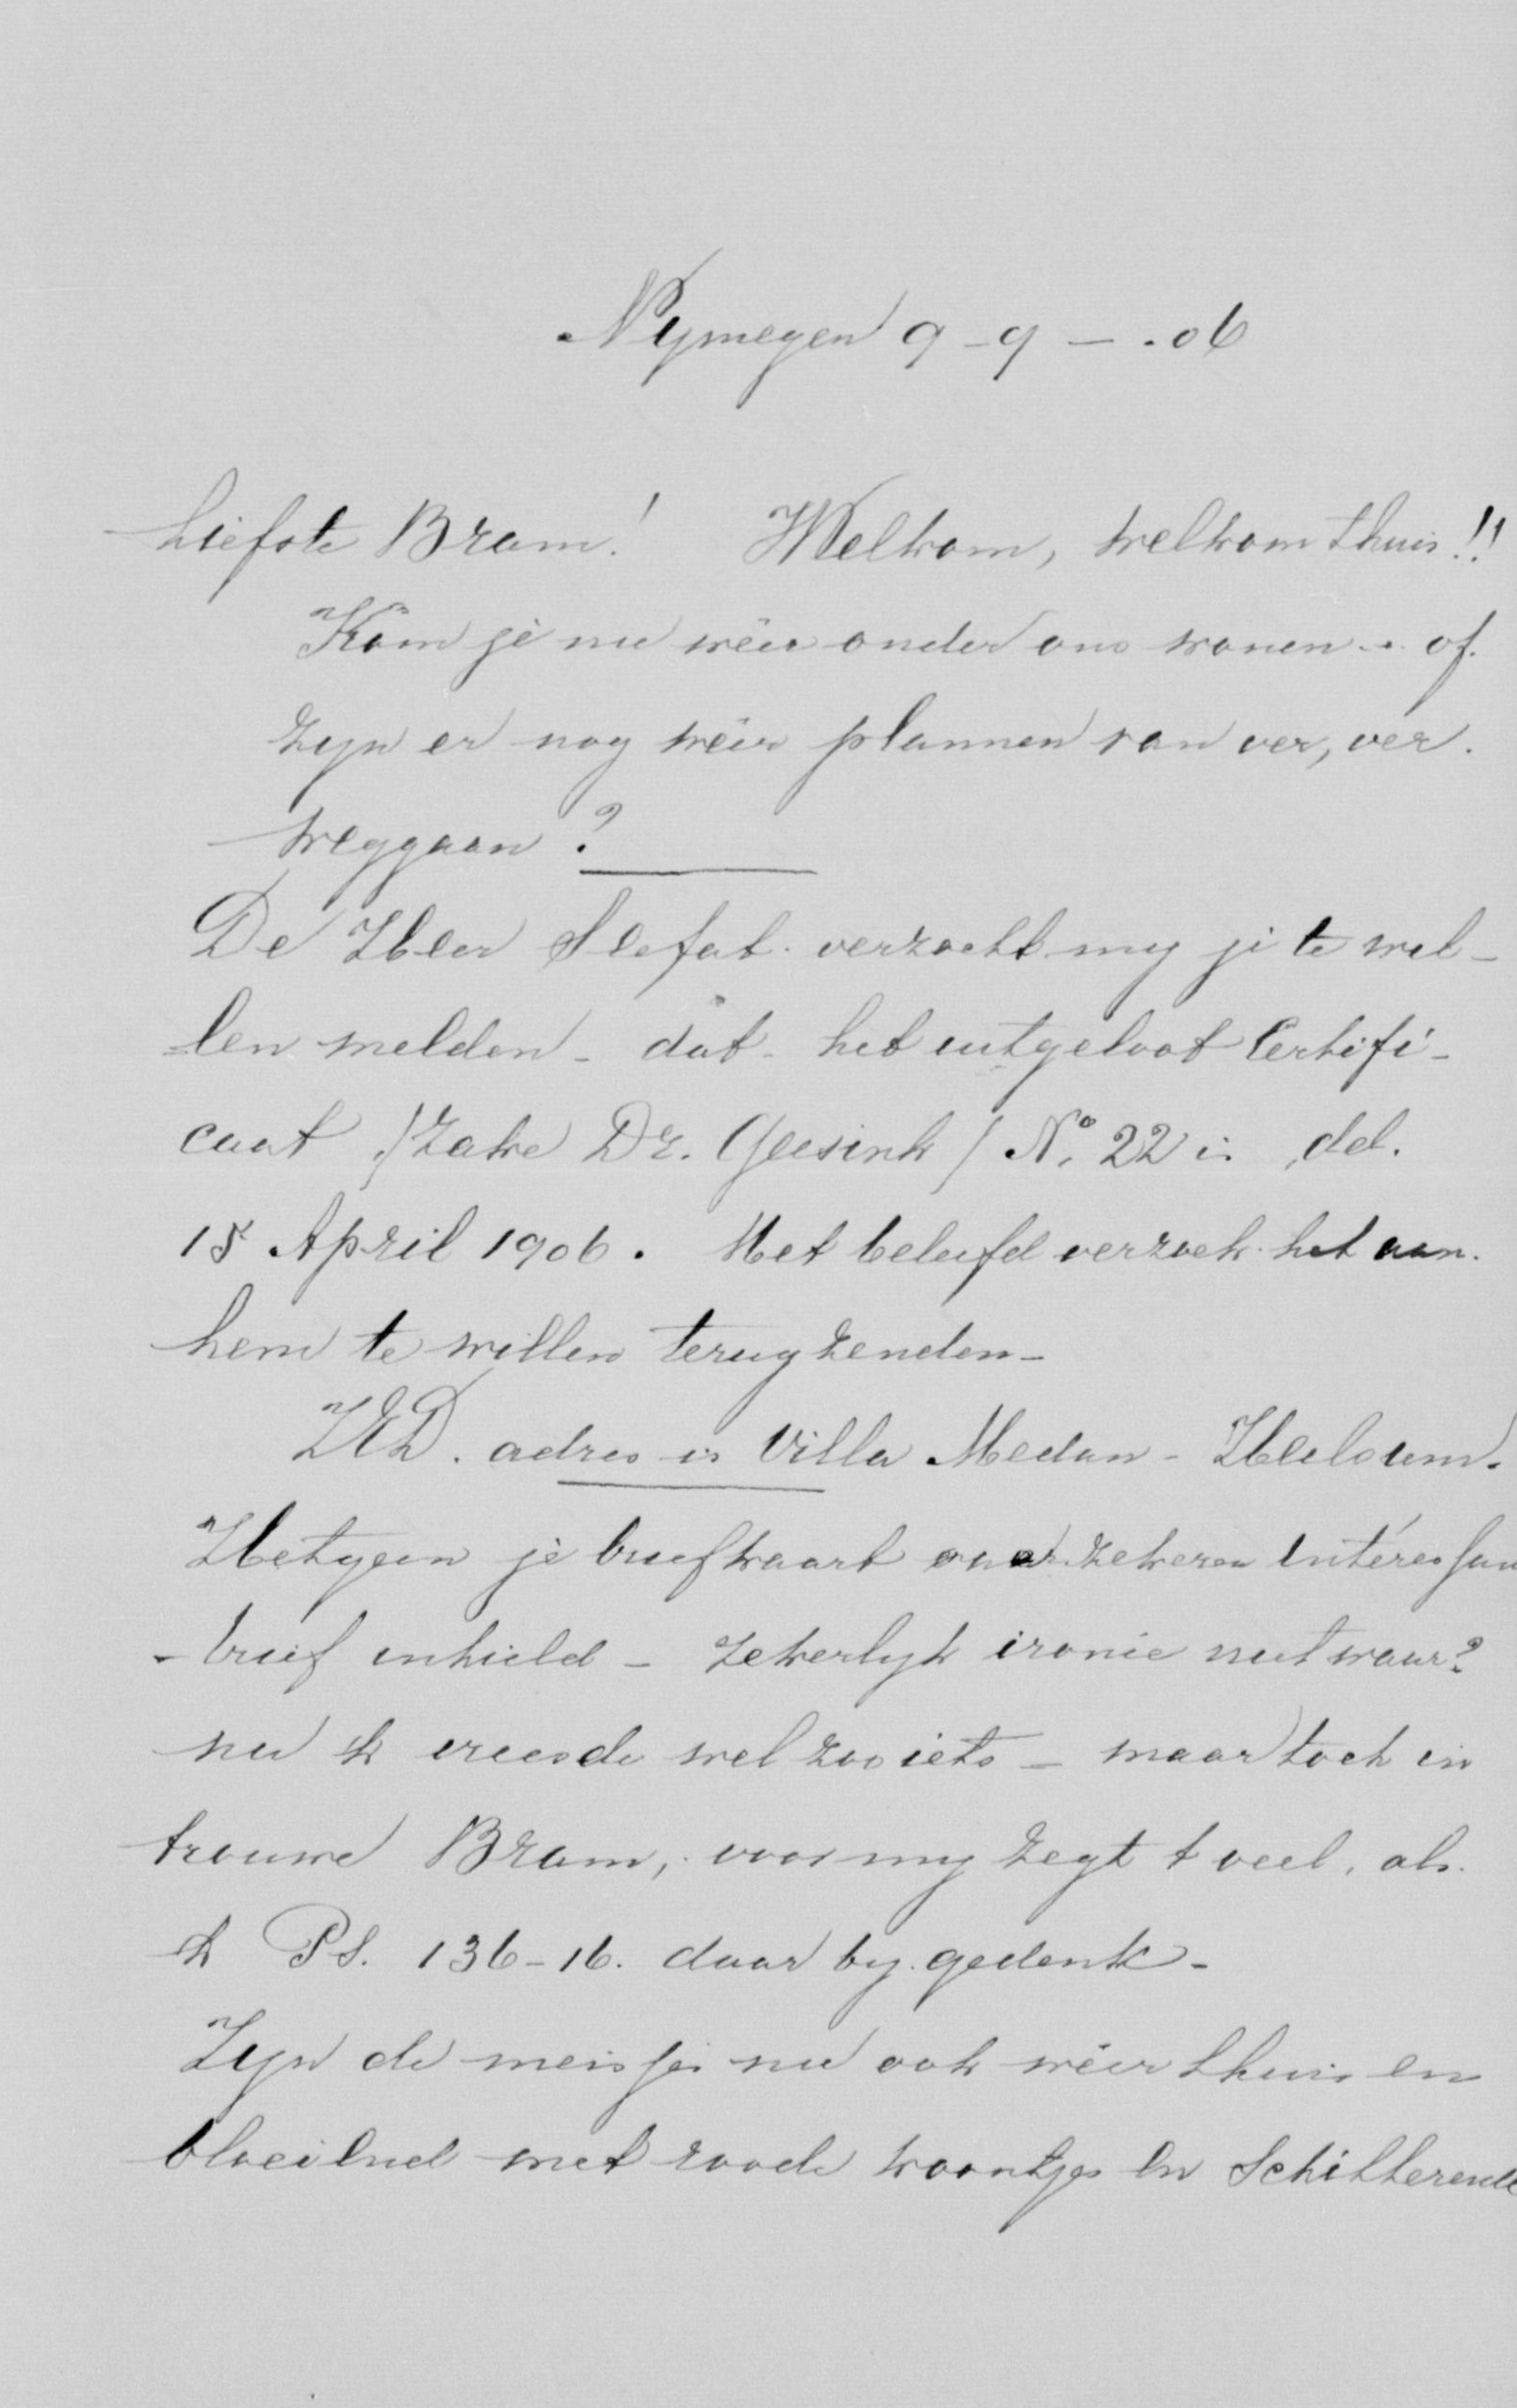 Nymegen 9-9-.06
Liefste Bram! Welkom, welkom thuis!!
Kom je nu wéér onder ons wonen.. of.
zyn er nog wéér plannen van ver, ver.
weggaan?
De Heer Slefat. verzocht my je te wil-
len melden - dat - het uitgeloot Certifi-
caat /zake Dr. Geesink/ No. 22 is, dd.
15 April 1906. Met beleefd verzoek het aan.
hem te willen terugzenden -
ZED. adres is Villa Medan - Heelsum.
Hetgeen je briefkaart over zekeren intéressan
- brief inhield - zekerlyk ironie niet waar?
nu k vreesde wel zoo iets - maar toch in
trouwe Bram, voor my zegt t veel, als.
k Ps. 136-16. daar by gedenk -
Zyn de meisjes nu ook wéér thuis en
bloeiend met roode koontjes en Schitterende